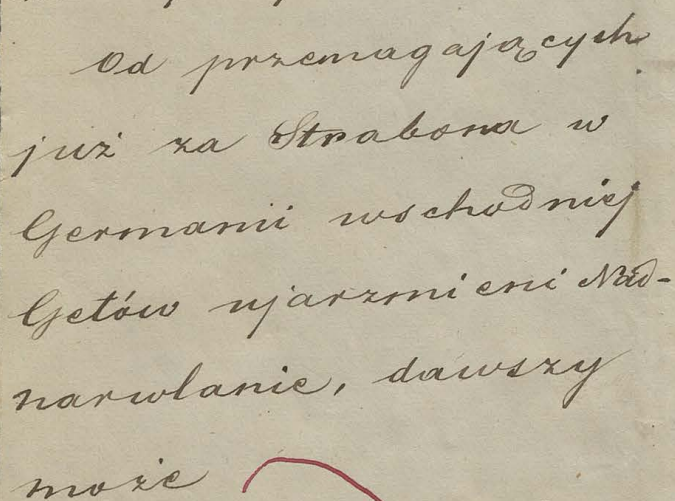 Od przemagających
już za Strabona w
Germanii wschodniej
Getów ujarzmieni Nad-
narwlanie, dawszy
może